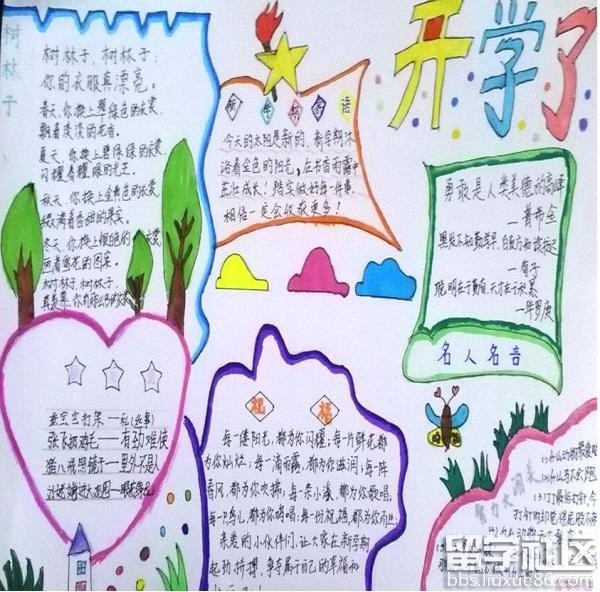 开学了
树林子
树林子,树林子:
你的衣服真漂亮。
春天,你换上翠绿色的衣裳,
飘着淡淡的花香。
夏天,你换上碧绿绿的衣裳,
闪耀着耀眼的光芒。
秋天,你换上金黄色的衣裳,
缀满着香甜的果实。
冬天,你换上银白色的衣裳,
画着雪花的图案。
树林子,树林子:
新学期寄语
今天的太阳是新的,新学期沐
浴着金色的阳光,在书香雨露中
茁壮成长!踏实做好每一件事,
相信一定会收获更多!
勇敢是人类美德的高峰
——普希金
黑发不知勤学早,白首方
聪明在于勤奋,天才在于积累
——华罗庚
名人名言
蚕宝宝打架——私(丝事)
张飞抓鸡毛——有劲难使
猪八戒照镜子——里外不是人
祝福
每一缕阳光,都为你闪耀;每一片鲜花都
为你灿烂;每一滴雨露,都为你滋润;每一阵
春风,都为你吹拂;每一条小溪,都为你歌唱;
每一只鸟儿,都为你鸣唱;每一份祝福,都为你而
亲爱的小伙伴们,让大家在新学期
起劲拼搏,争夺属于自己的幸福和
智力大闯关
留学社区
bbs.liuxue86.com